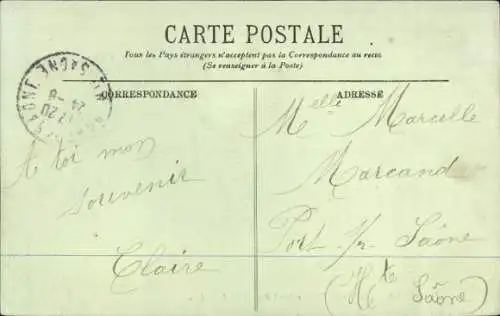 CARTE POSTALE
Tous les Pays étrangers n'acceptent pas la Correspondance au recto
(Se renseigner à la Poste)
CORRESPONDANCE
ADRESSE
A toi mon
souvenir
Claire
Melle Marcelle
Marcand
Port s/r Saône
(Hte Saône)